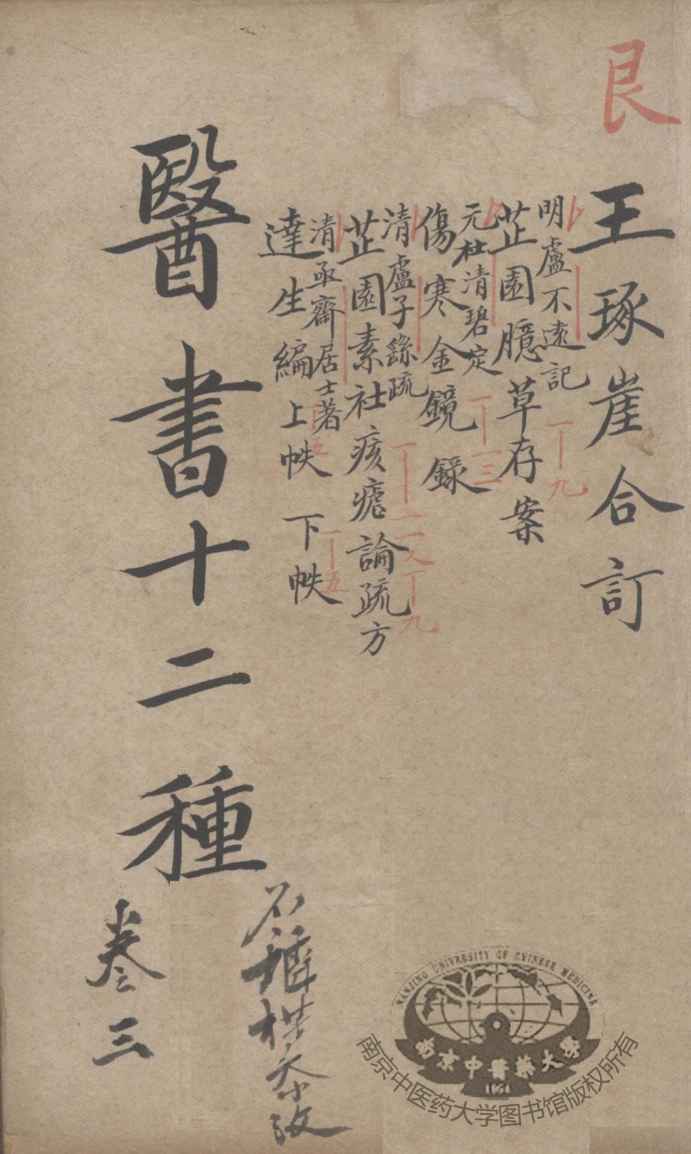 艮
王琢崖合訂
明盧不遠記
芷園臆草存案
一丁九
元杜清碧定
傷寒金鏡錄
一丁三
清盧子繇疏
芷園素社痎瘧論疏方
清亟齋居士著
達生編上帙下帙
丁五
醫書十二種
卷三
NANJING UNIVERSITY OF CHINESE MEDICINE
南京中醫藥大學
1954
南京中医药大学图书馆版权所有